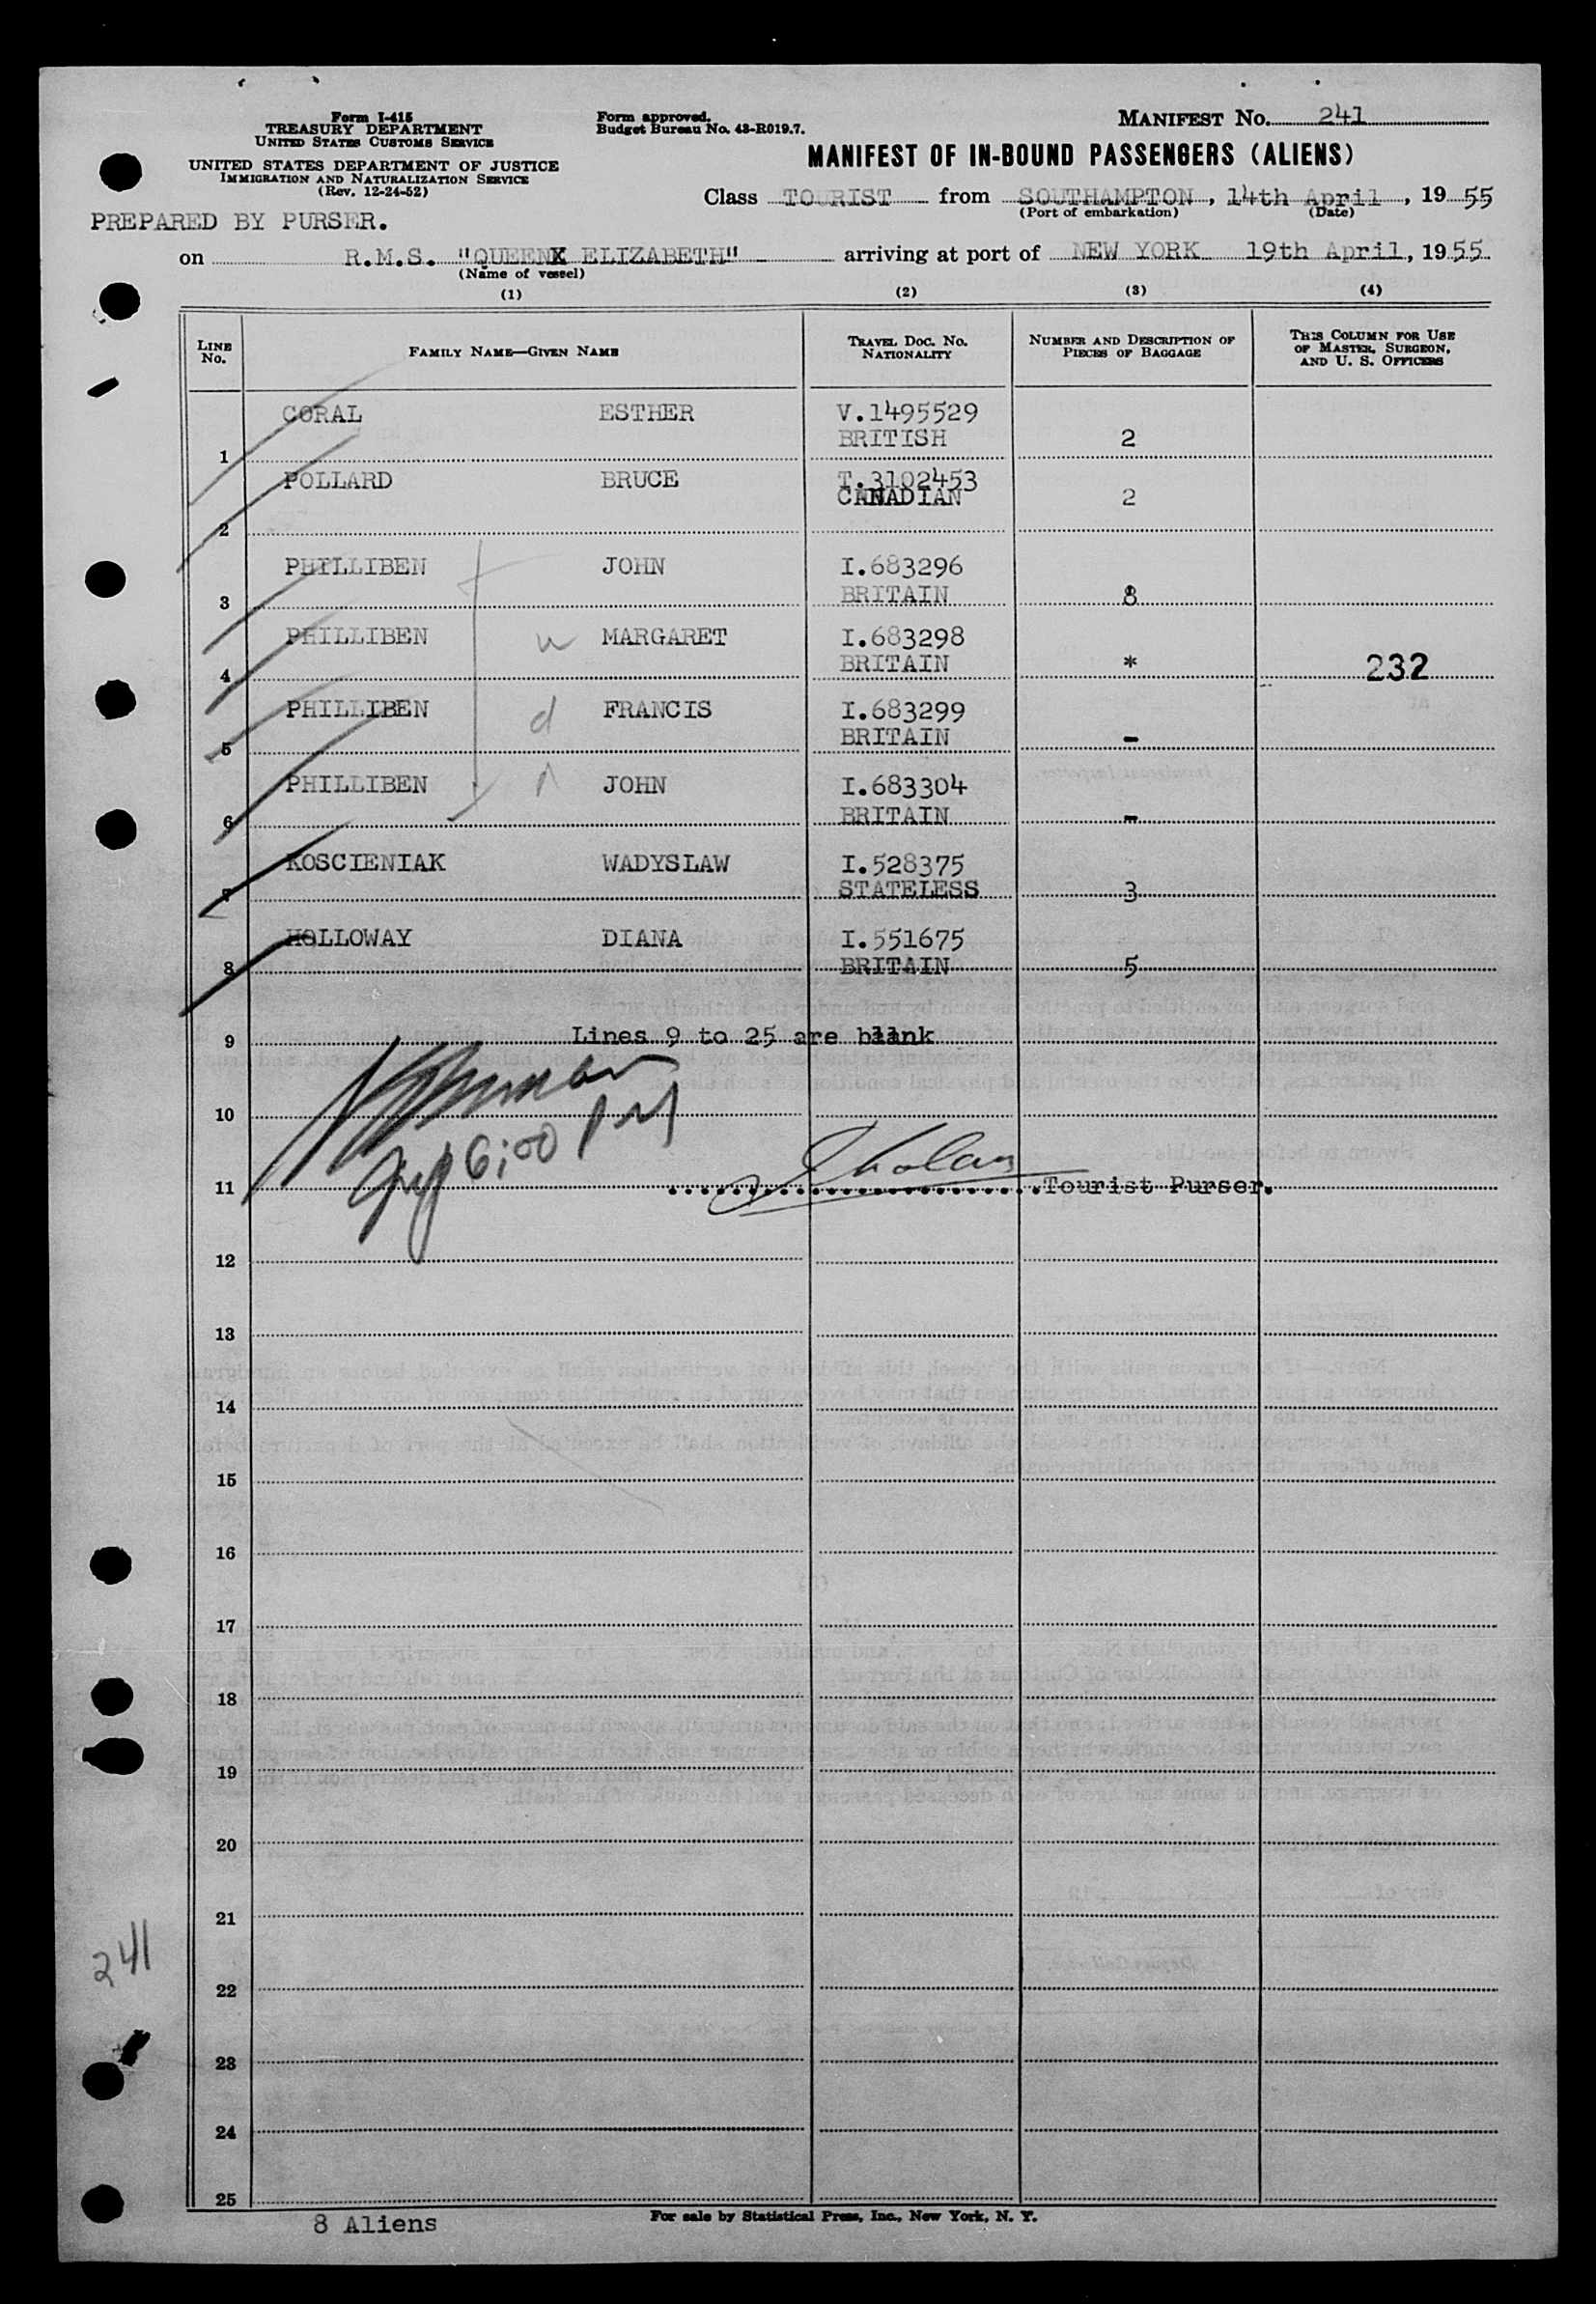 Form I-415
TREASURY DEPARTMENT
UNITED STATES CUSTOMS SERVICE
UNITED STATES DEPARTMENT OF JUSTICE
IMMIGRATION AND NATURALIZATION SERVICE
(Rev. 12-24-52)
Form approved.
Budget Bureau No. 43-R019.7.
MANIFEST No. 241
MANIFEST OF IN-BOUND PASSENGERS (ALIENS)
Class TOURIST from SOUTHAMPTON, 14th April, 1955
(Port of embarkation) (Date)
PREPARED BY PURSER.
on R.M.S. "QUEENX ELIZABETH" arriving at port of NEW YORK 19th April, 1955
(Name of vessel)
(1) (2) (3) (4)
LINE No. FAMILY NAME—GIVEN NAME TRAVEL DOC. NO. NATIONALITY NUMBER AND DESCRIPTION OF PIECES OF BAGGAGE THIS COLUMN FOR USE OF MASTER, SURGEON, AND U. S. OFFICERS
CORAL ESTHER V.1495529
1 BRITISH 2
POLLARD BRUCE T.3102453
CANADIAN 2
2
PHILLIBEN JOHN I.683296
3 BRITAIN 8
PHILLIBEN w MARGARET I.683298
4 BRITAIN * 232
PHILLIBEN d FRANCIS I.683299
5 BRITAIN -
PHILLIBEN JOHN I.683304
6 BRITAIN -
KOSCIENIAK WADYSLAW I.528375
7 STATELESS 3
HOLLOWAY DIANA I.551675
8 BRITAIN 5
9 Lines 9 to 25 are blank
10
6:00 PM
11 Tourist Purser.
12
13
14
15
16
17
18
19
20
21
241
22
23
24
25
8 Aliens
For sale by Statistical Press, Inc., New York, N. Y.